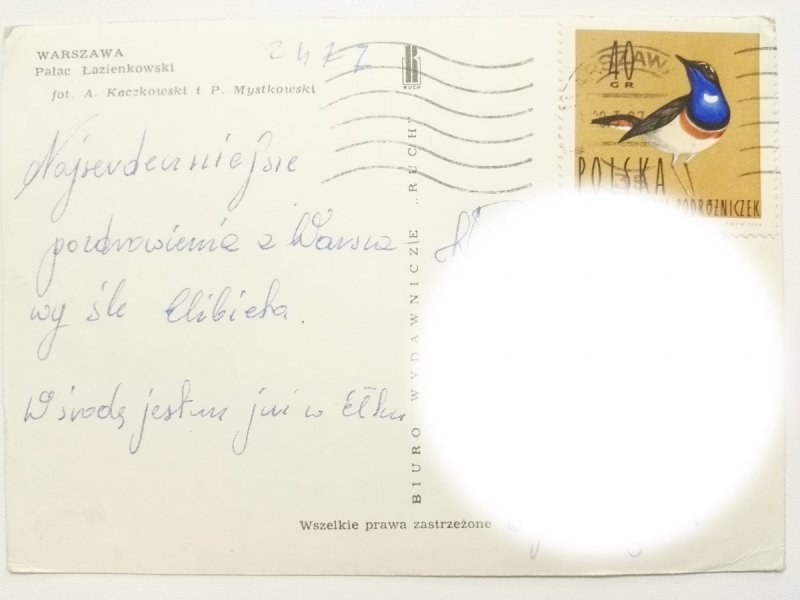 WARSZAWA
Pałac Łazienkowski
fot. A. Kaczkowski i P. Mystkowski
2477
RUCH
40
GR
POLSKA
PODRÓŻNICZEK
Najserdeczniejsze
pozdrowienia z Warsza
wy śle Elibieta.
W środę jestem już w Ełku
BIURO WYDAWNICZE „RUCH”
Wszelkie prawa zastrzeżone